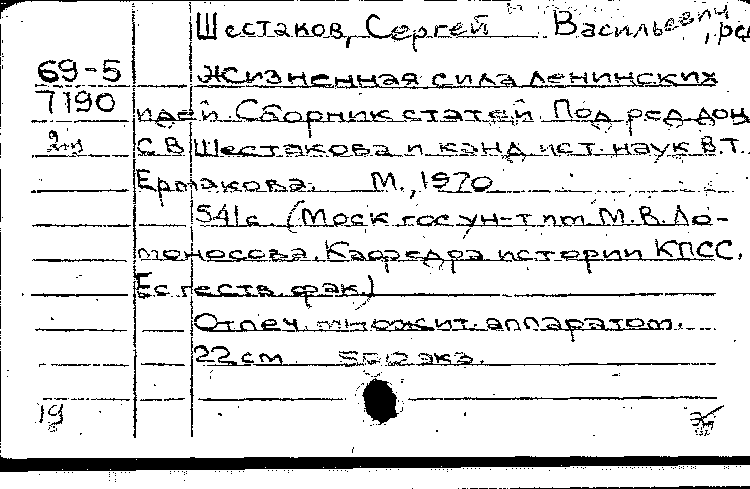 Шестаков, Сергей Васильевич, ред
69-5 Жизненная сила ленинских
7190 идей. Сборник статей. Под ред. доц
2m С.В. Шестакова и канд. ист. наук В.Т.
Ермакова. М., 1970
541с. (Моск. гос. ун-т им. М.В. Ло-
моносова. Кафедра истории КПСС.
Естеств. фак.)
Отпеч. множит. аппаратом.
22 см 500 экз.
19